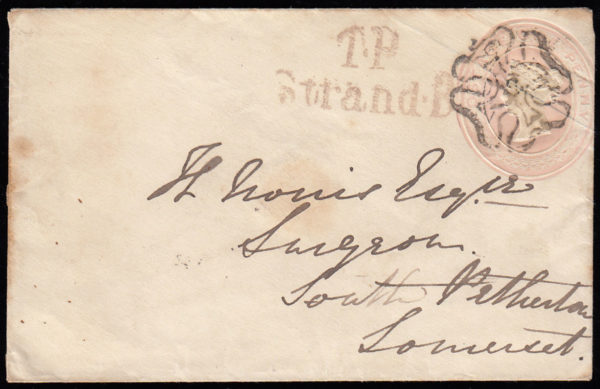 T.P
Strand.B
H Norris Esqre
Surgeon
South Petherton
Somerset.